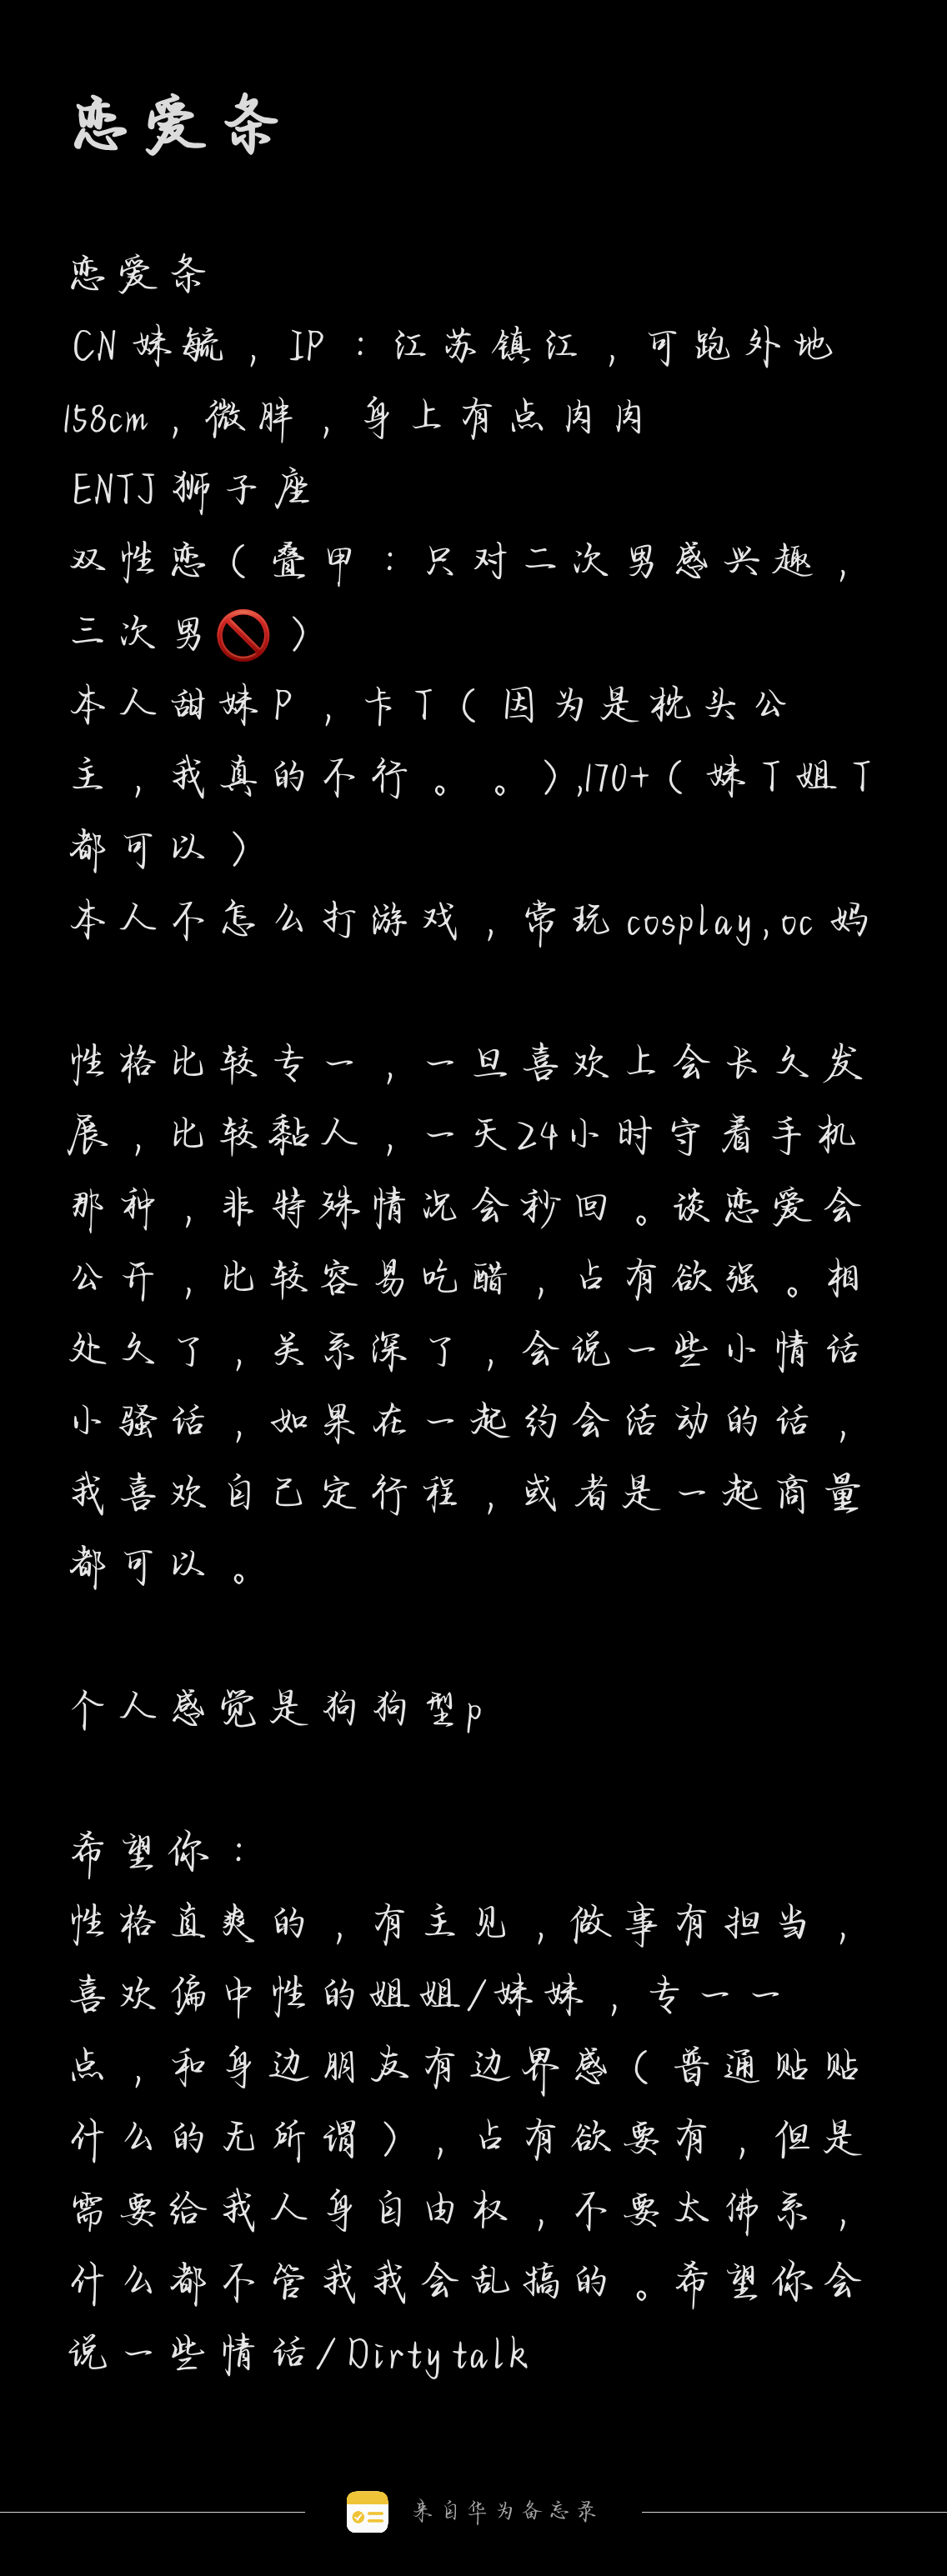 恋爱条
恋爱条
CN妹毓，IP：江苏镇江，可跑外地
158cm，微胖，身上有点肉肉
ENTJ狮子座
双性恋（叠甲：只对二次男感兴趣，
三次男🚫）
本人甜妹P，卡T（因为是枕头公
主，我真的不行。。）,170+（妹T姐T
都可以）
本人不怎么打游戏，常玩cosplay,oc妈
性格比较专一，一旦喜欢上会长久发
展，比较黏人，一天24小时守着手机
那种，非特殊情况会秒回。谈恋爱会
公开，比较容易吃醋，占有欲强。相
处久了，关系深了，会说一些小情话
小骚话，如果在一起约会活动的话，
我喜欢自己定行程，或者是一起商量
都可以。
个人感觉是狗狗型p
希望你：
性格直爽的，有主见，做事有担当，
喜欢偏中性的姐姐/妹妹，专一一
点，和身边朋友有边界感（普通贴贴
什么的无所谓），占有欲要有，但是
需要给我人身自由权，不要太佛系，
什么都不管我我会乱搞的。希望你会
说一些情话/Dirty talk
来自华为备忘录